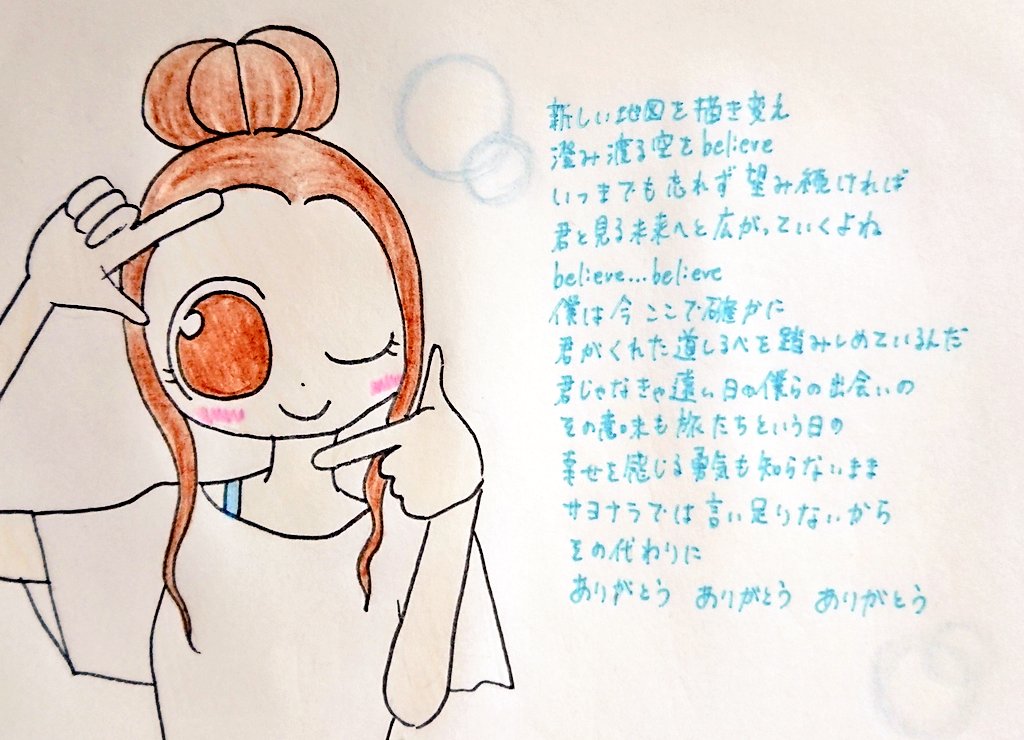 新しい地図を描き変え
澄み渡る空をbelieve
いつまでも忘れず望み続ければ
君と見る未来へと広がっていくよね
believe...believe
僕は今ここで確かに
君がくれた道しるべを踏みしめているんだ
君じゃなきゃ遠い日の僕らの出会いの
その意味も旅立ちという日の
幸せを感じる勇気も知らないまま
サヨナラでは言い足りないから
その代わりに
ありがとう ありがとう ありがとう